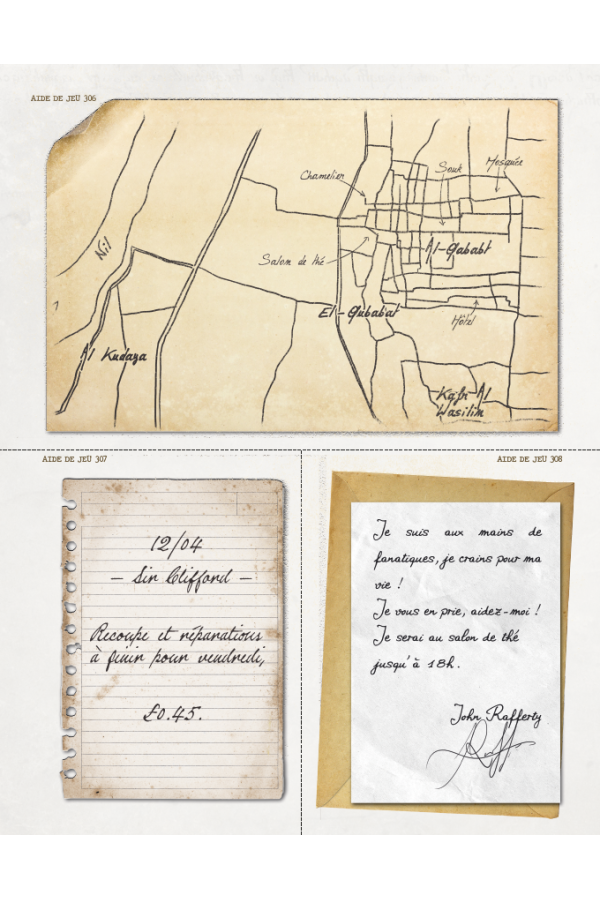 AIDE DE JEU 306
Chamelier
Souk
Mosquée
Nil
Salon de thé
Al-Gababt
El-Gubabat
Hôtel
Al Kudaya
Kafr Al
Wasilim
AIDE DE JEU 307
12/04
– Sir Clifford –
Recoupe et réparations
à finir pour vendredi,
£0.45.
AIDE DE JEU 308
Je suis aux mains de
fanatiques, je crains pour ma
vie !
Je vous en prie, aidez-moi !
Je serai au salon de thé
jusqu'à 18h.
John Rafferty